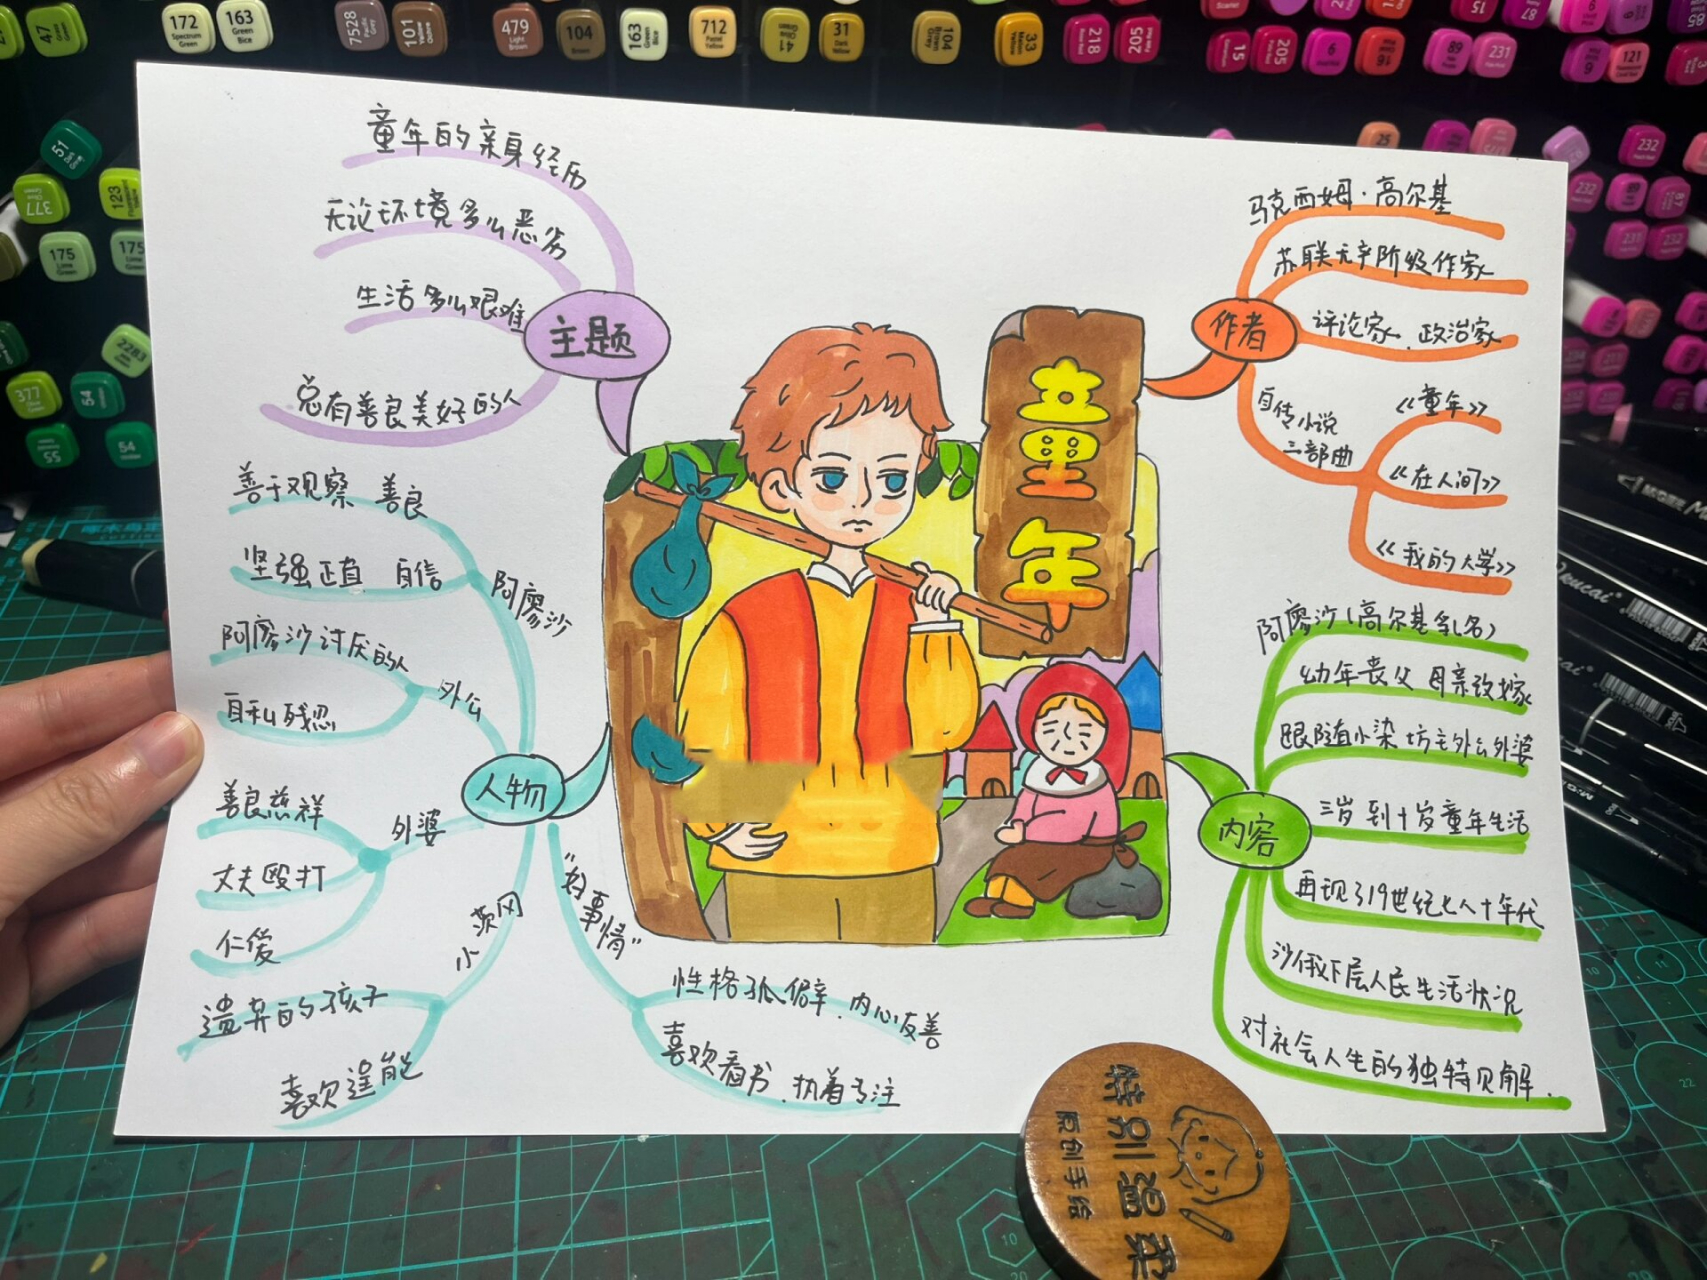 童年
主题
童年的亲身经历
无论环境多么恶劣
生活多么艰难
总有善良美好的人
作者
马克西姆·高尔基
苏联无产阶级作家
评论家、政治家
自传小说
三部曲
《童年》
《在人间》
《我的大学》
人物
阿廖沙
善于观察 善良
坚强正直 自信
外公
阿廖沙讨厌的人
自私残忍
外婆
善良慈祥
丈夫殴打
仁爱
小茨冈
遗弃的孩子
喜欢逞能
"好事情"
性格孤僻、内心友善
喜欢看书、执着专注
内容
阿廖沙(高尔基乳名)
幼年丧父 母亲改嫁
跟随小染坊主外公外婆
三岁到十岁童年生活
再现了19世纪七八十年代
沙俄下层人民生活状况
对社会人生的独特见解.
原创手绘
47
172
Spectrum Green
163
Green Bice
7528
101
479
Light Brown
104
Brown
163
712
Pastel Yellow
41
31
Dark Yellow
104
33
218
205
15
205
6
89
231
121
51
377
123
175
Lime Green
175
2283
377
54
55
54
25
232
232